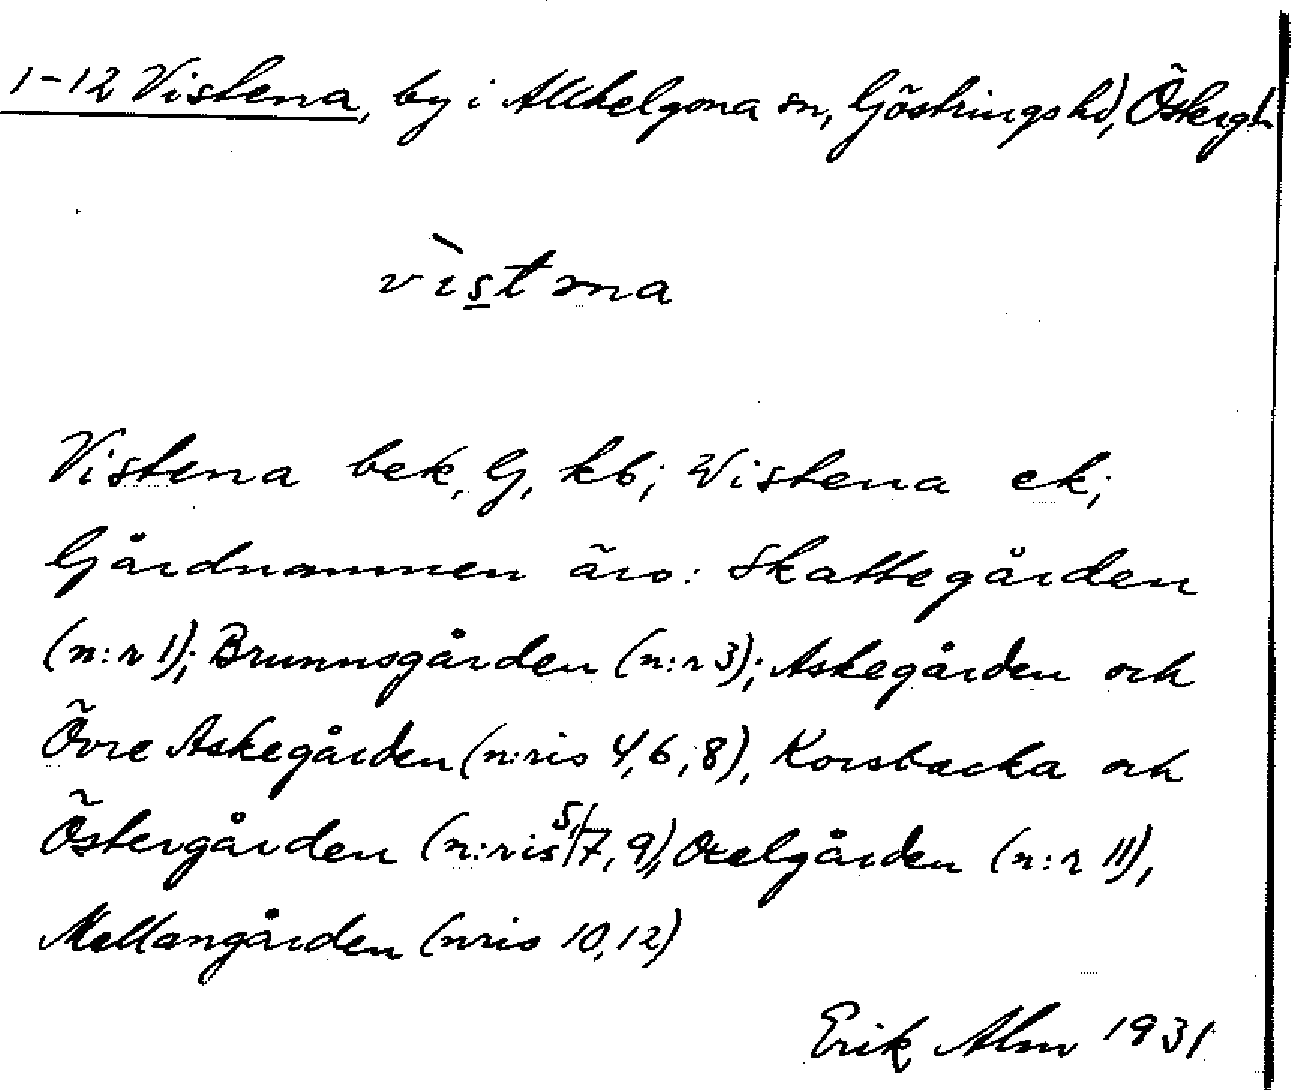 1-12 Vistena, by i Allhelgona sn, Göstrings hd, Östergl.
vìstna
Vistena bek, G, kb; Wistena ek;
Gårdnamnen äro: Skattegården
(n:r 1); Brunnsgården (n:r 3); Askegården och
Övre Askegården (n:ris 4, 6, 8), Korsbacka och
Östergården (n:ris 5, 7, 9), Oxelgården (n:r 11),
Mellangården (nris 10, 12)
Erik Alm 1931